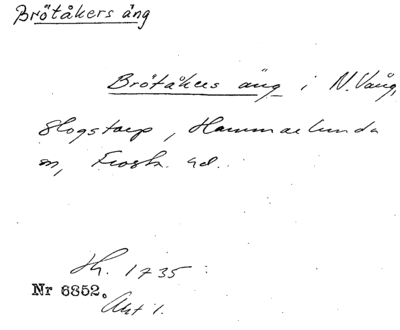 Brötåkers äng
Brötåkers äng i N. Vång,
Skogstorp, Hammarlunda
sn, Frosta hd.
Sk. 1735
Nr 6852.
Akt 1.